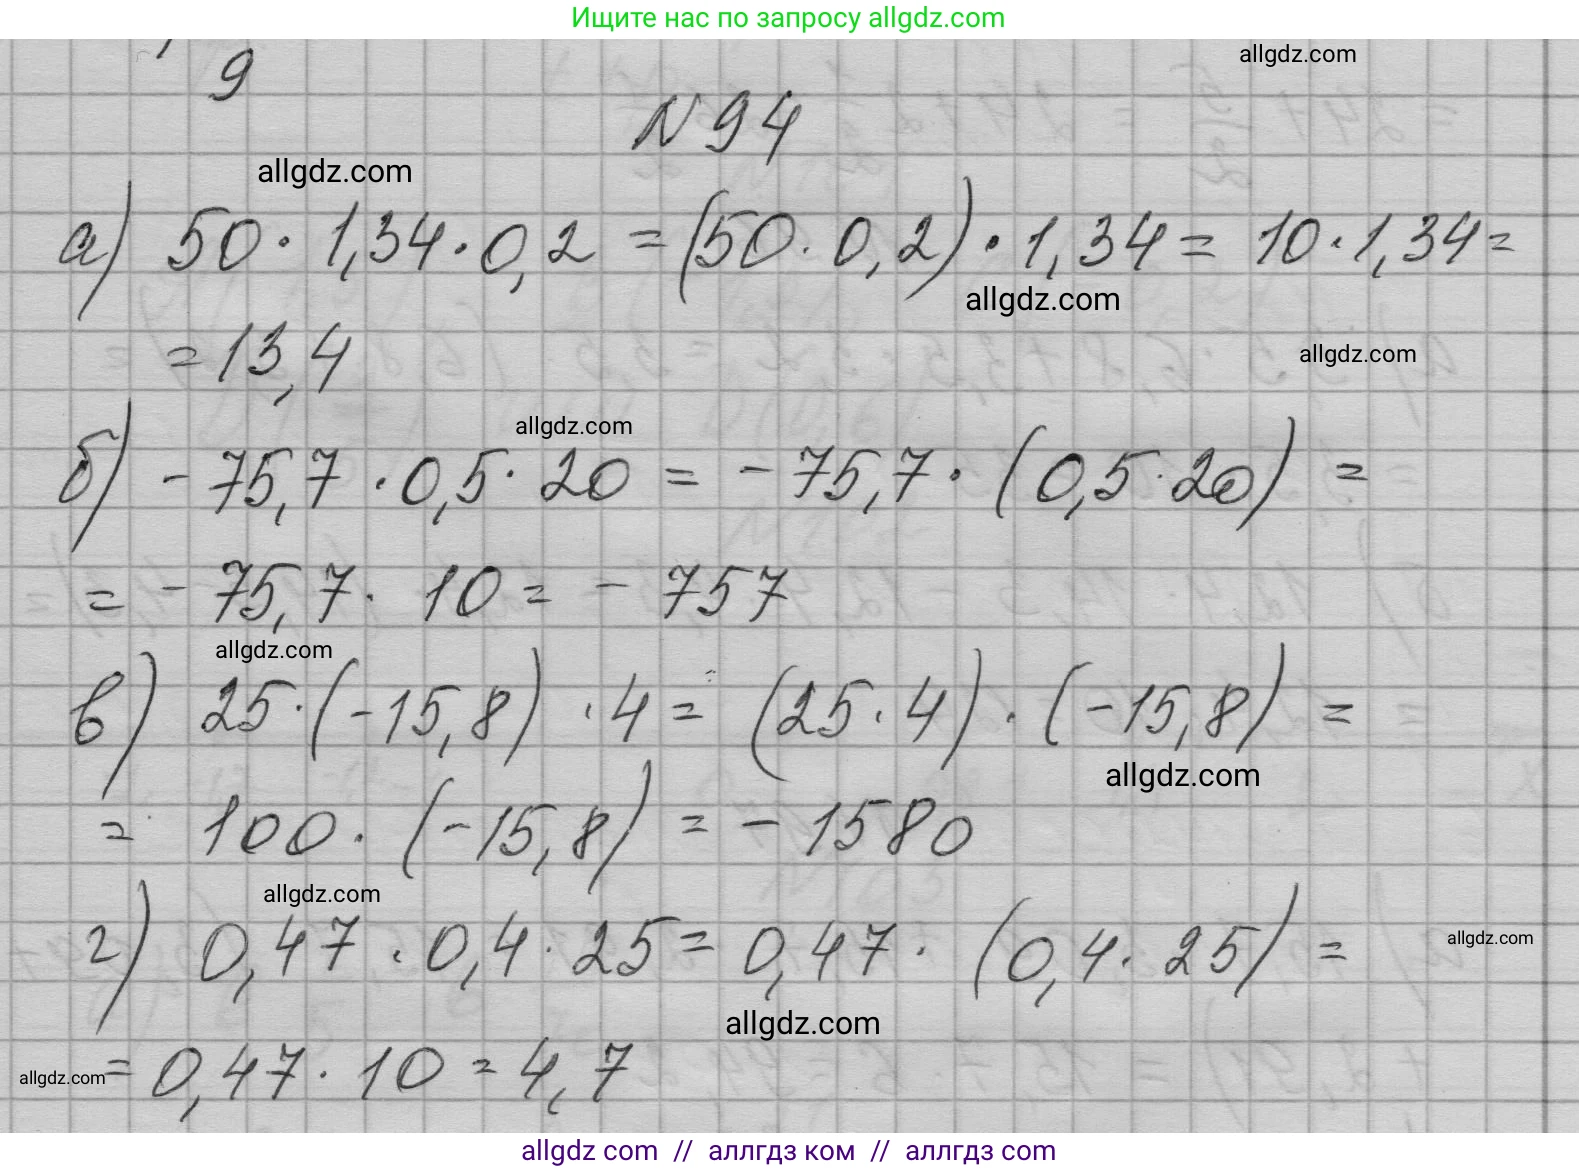 Ищите нас по запросу allgdz.com
allgdz.com
9
N 94
allgdz.com
а) 50 · 1,34 · 0,2 = (50 · 0,2) · 1,34 = 10 · 1,34 =
allgdz.com
= 13,4
allgdz.com
allgdz.com
б) - 75,7 · 0,5 · 20 = - 75,7 · (0,5 · 20) =
= - 75,7 · 10 = - 757
allgdz.com
в) 25 · (-15,8) · 4 = (25 · 4) · (-15,8) =
allgdz.com
= 100 · (-15,8) = - 1580
allgdz.com
г) 0,47 · 0,4 · 25 = 0,47 · (0,4 · 25) =
allgdz.com
allgdz.com
allgdz.com
= 0,47 · 10 = 4,7
allgdz com // аллгдз ком // аллгдз com